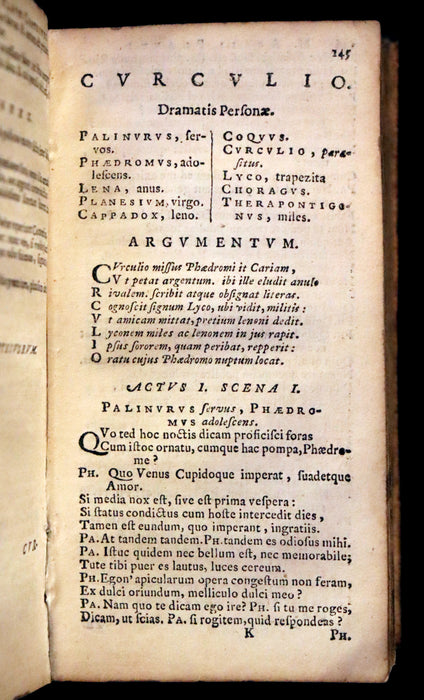 145
CVRCVLIO.
Dramatis Personæ.
PALINVRVS, ser-
vos.
PHÆDROMVS, ado-
lescens.
LENA, anus.
PLANESIVM, virgo.
CAPPADOX, leno.
COQVVS.
CVRCVLIO, para-
situs.
LYCO, trapezita
CHORAGVS.
THERAPONTIGO-
NVS, miles.
ARGVMENTVM.
CVrculio missus Phædromi it Cariam,
Vt petat argentum. ibi ille eludit anulo
Rivalem. scribit atque obsignat literas.
Cognoscit signum Lyco, ubi vidit, militis:
Vt amicam mittat, pretium lenoni dedit.
Lyconem miles ac lenonem in jus rapit.
Ipsus sororem, quam peribat, repperit:
Oratu cujus Phædromo nuptum locat.
ACTVS I. SCENA I.
PALINVRVS servus, PHÆDRO-
MVS adolescens.
QVo ted hoc noctis dicam proficisci foras
Cum istoc ornatu, cumque hac pompa, Phædro-
me?
PH. Quo Venus Cupidoque imperat, suadetque
Amor.
Si media nox est, sive est prima vespera:
Si status condictus cum hoste intercedit dies,
Tamen est eundum, quo imperant, ingratiis.
PA. At tandem tandem. PH. tandem es odiosus mihi.
PA. Istuc quidem nec bellum est, nec memorabile;
Tute tibi puer es lautus, luces cereum.
PH. Egon' apicularum opera congestum non feram,
Ex dulci oriundum, melliculo dulci meo?
PA. Nam quo te dicam ego ire? PH. si tu me roges,
Dicam, ut scias. PA. si rogitem, quid respondeas?
K PH.